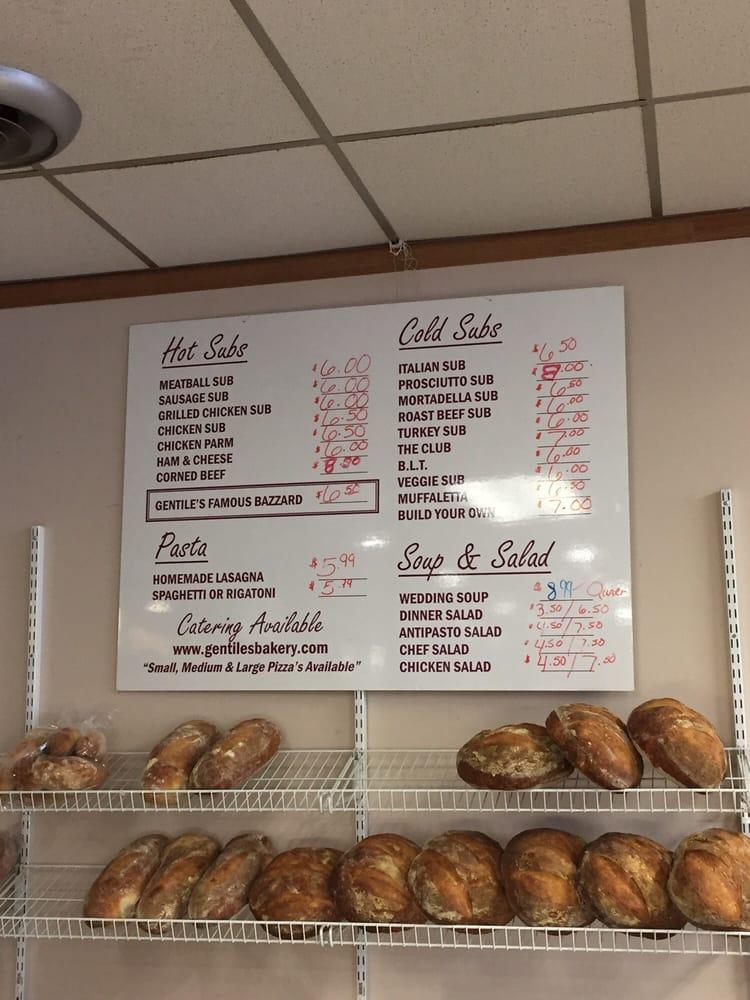 Hot Subs
MEATBALL SUB $6.00
SAUSAGE SUB $6.00
GRILLED CHICKEN SUB $6.00
CHICKEN SUB $6.50
CHICKEN PARM $6.50
HAM & CHEESE $6.00
CORNED BEEF $8.50
GENTILE'S FAMOUS BAZZARD $6.50
Pasta
HOMEMADE LASAGNA $5.99
SPAGHETTI OR RIGATONI
Catering Available
www.gentilesbakery.com
"Small, Medium & Large Pizza's Available"
Cold Subs
ITALIAN SUB $6.50
PROSCIUTTO SUB $8.00
MORTADELLA SUB $6.50
ROAST BEEF SUB $6.00
TURKEY SUB $6.00
THE CLUB $7.00
B.L.T. $6.00
VEGGIE SUB $6.00
MUFFALETTA $6.50
BUILD YOUR OWN $7.00
Soup & Salad
WEDDING SOUP $8.99
DINNER SALAD $3.50/6.50
ANTIPASTO SALAD $4.50/7.50
CHEF SALAD $4.50/7.50
CHICKEN SALAD $4.50/7.50